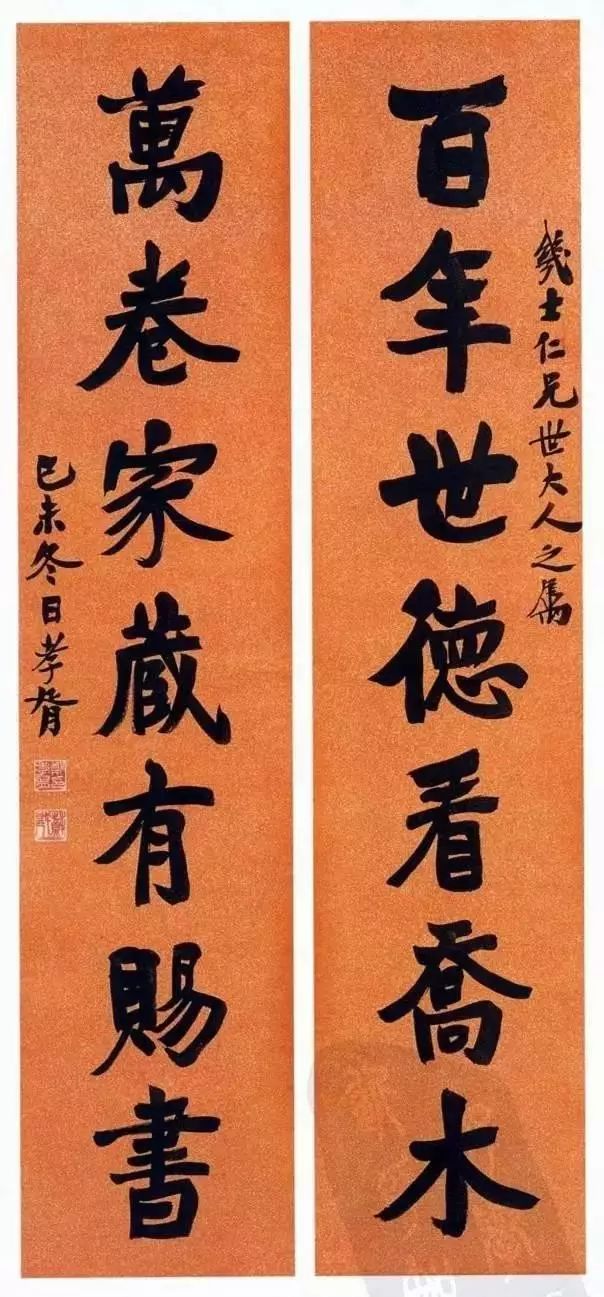 百年世德看喬木
幾士仁兄世大人之属
萬卷家藏有賜書
己未冬日孝胥